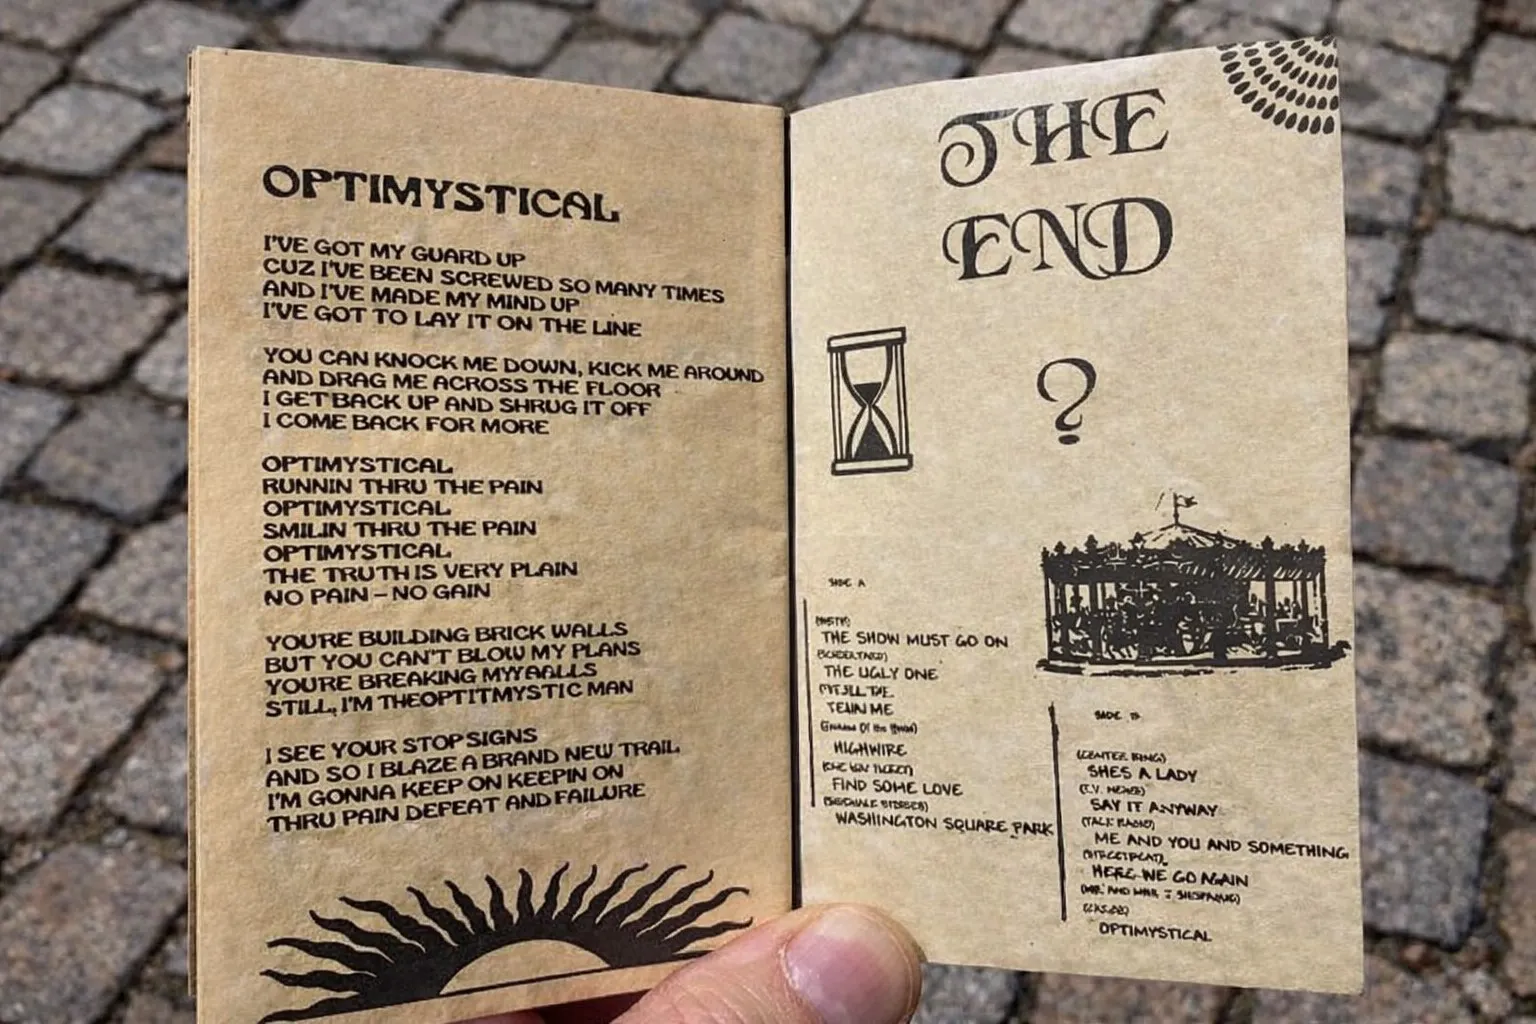 OPTIMYSTICAL
I'VE GOT MY GUARD UP
CUZ I'VE BEEN SCREWED SO MANY TIMES
AND I'VE MADE MY MIND UP
I'VE GOT TO LAY IT ON THE LINE
YOU CAN KNOCK ME DOWN, KICK ME AROUND
AND DRAG ME ACROSS THE FLOOR
I GET BACK UP AND SHRUG IT OFF
I COME BACK FOR MORE
OPTIMYSTICAL
RUNNIN THRU THE PAIN
OPTIMYSTICAL
SMILIN THRU THE PAIN
OPTIMYSTICAL
THE TRUTH IS VERY PLAIN
NO PAIN – NO GAIN
YOU'RE BUILDING BRICK WALLS
BUT YOU CAN'T BLOW MY PLANS
YOU'RE BREAKING
STILL, I'M THEOPTITMYSTIC MAN
I SEE YOUR STOP SIGNS
AND SO I BLAZE A BRAND NEW TRAIL
I'M GONNA KEEP ON KEEPIN ON
THRU PAIN DEFEAT AND FAILURE
THE
END
?
SIDE A
THE SHOW MUST GO ON
THE UGLY ONE
ME
HIGHWIRE
FIND SOME LOVE
WASHINGTON SQUARE PARK
(CENTER RING)
SHES A LADY
SAY IT ANYWAY
(TALK RADIO)
ME AND YOU AND SOMETHING
HERE WE GO AGAIN
OPTIMYSTICAL